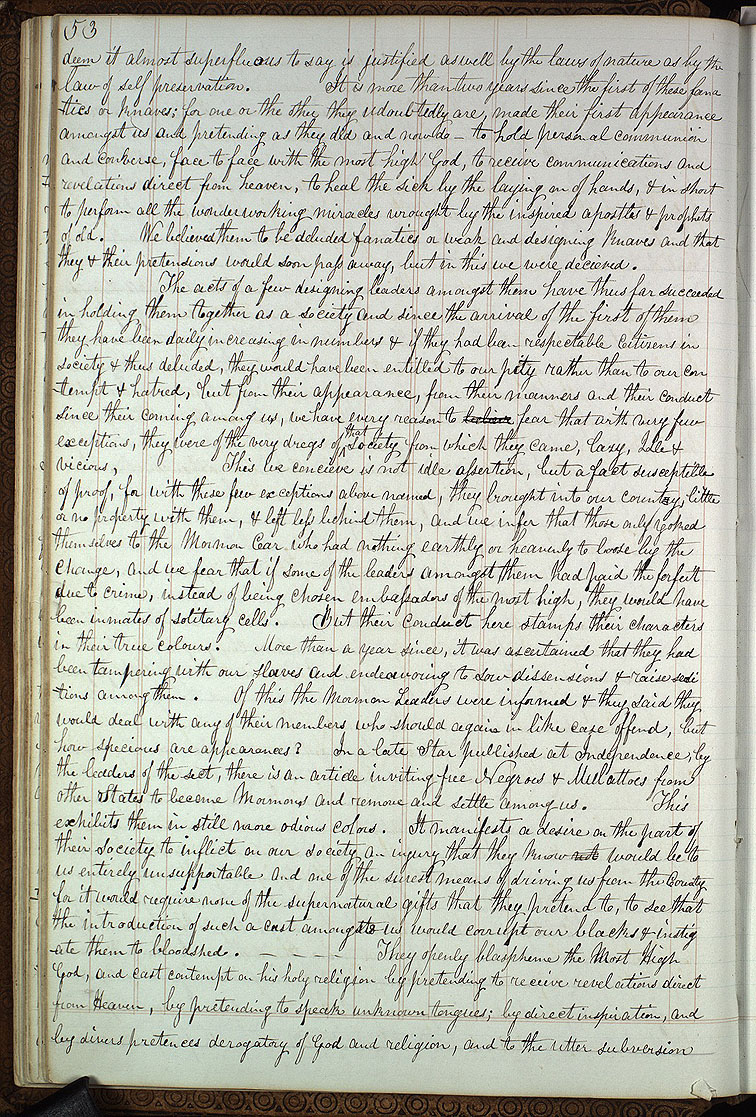 53
deem it almost superfluous to say is justified as well by the laws of nature as by the
law of self preservation. It is more than two years since the first of these fana
tics or knaves; for one or the other they udoubtedly are, made their first appearance
amongst us and pretending as they did and now do – to hold personal communion
and converse, face to face with the most high God, to receive communications and
revelations direct from heaven, to heal the sick by the laying on of hands, & in short
to perform all the wonder working miracles wrought by the inspired apostles & prophets
of old. We believed them to be deluded fanatics or weak and designing knaves and that
they & their pretensions would soon pass away, but in this we were decieved.
The acts of a few designing leaders amongst them have thus far succeeded
in holding them together as a society and since the arrival of the first of them
they have been daily increasing in numbers & if they had been respectable citizens in
society & thus deluded, they would have been entitled to our pity rather than to our con
tempt & hatred, but from their appearance, from their manners and their conduct
since their coming among us, we have every reason to believe fear that with very few
exceptions, they were of the very dregs of that Society from which they came, lazy, Idle &
vicious, This we concieve is not idle assertion, but a fact susceptible
of proof, for with these few exceptions above named, they brought into our country, little
or no property with them, & left less behind them, and we infer that those only yoked
themselves to the Mormon Car who had nothing earthly or heavenly to loose by the
change, and we fear that if some of the leaders amongst them had paid the forfeit
due to crime, instead of being chosen embassadors of the most high, they would have
been inmates of solitary cells. But their conduct here stamps their characters
in their true colours. More than a year since, it was ascertained that they had
been tampering with our slaves and endeavoring to sow dissensions & raise sedi
tions among them. Of this the Mormon Leaders were informed & they said they
would deal with any of their members who should again in like case offend, but
how specious are appearances? In a late Star published at Independence, by
the leaders of the sect, there is an article inviting free Negroes & Mulattoes from
other States to become Mormons and remove and settle among us. This
exhibits them in still more odious colors. It manifests a desire on the part of
their society to inflict on our society an injury that they know not would be to
us entirely unsupportable and one of the surest means of driving us from the County,
for it would require none of the supernatural gifts that they pretend to, to see that
the introduction of such a cast amongst us would corrupt our blacks & instig
ate them to bloodshed. – – – – – They openly blaspheme the Most High
God, and cast contempt on his holy religion by pretending to receive revelations direct
from Heaven, by pretending to speak unknown tongues; by direct inspiration, and
by divers pretences derogatory of God and religion, and to the utter subversion